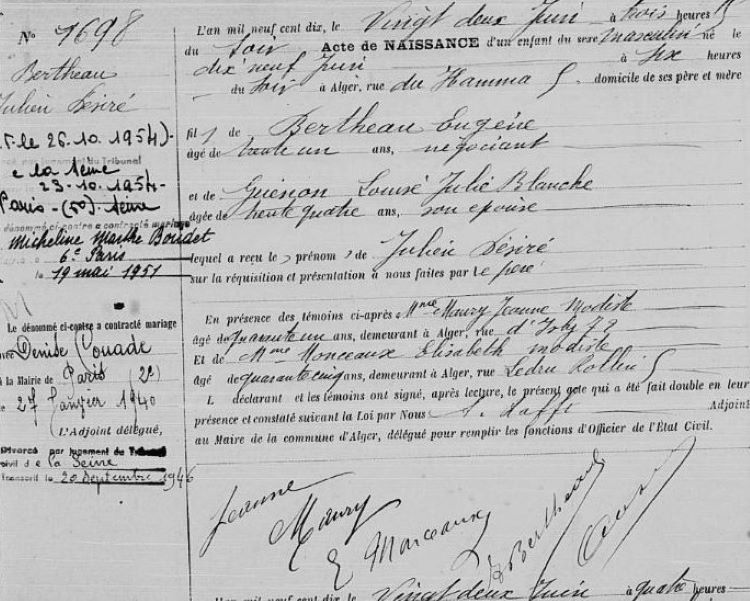 No 1698
Bertheau
Julien Désiré
le 26.10.1954
par jugement du Tribunal
e la Seine
23-10-1954
Paris - (5e) Seine
dénommé ci-contre a contracté mariage
Micheline Marthe Boudet
6e Paris
le 19 mai 1951
Le dénommé ci-contre a contracté mariage
avec Denise Couade
à la Mairie de Paris (2e)
le 27 Janvier 1940
L'Adjoint délégué,
Divorcé par jugement du Tribunal
civil d e la Seine
transcrit le 20 Septembre 1946
L'an mil neuf cent dix, le Vingt deux Juin à trois heures
du Soir Acte de NAISSANCE d'un enfant du sexe masculin né le
dix neuf Juin à six heures
du soir à Alger, rue du Hamma 5 domicile de ses père et mère
fils de Bertheau Eugène
âgé de trente un ans, négociant
et de Guénon Louise Julie Blanche
âgée de trente quatre ans, son épouse
lequel a reçu le prénom de Julien Désiré
sur la réquisition et présentation à nous faites par le père
En présence des témoins ci-après Mme Maury Jeanne Modiste
âgé de quarante un ans, demeurant à Alger, rue d'Isly 72
Et de Mme Monceaux Elisabeth modiste
âgé de quarante cinq ans, demeurant à Alger, rue Ledru Rollin 5
L déclarant et les témoins ont signé, après lecture, le présent acte qui a été fait double en leur
présence et constaté suivant la Loi par Nous Adjoint
au Maire de la commune d'Alger, délégué pour remplir les fonctions d'Officier de l'État Civil.
Jeanne Maury
E Monceaux
E Bertheau
L'an mil neuf cent dix, le Vingt deux Juin à quatre heures